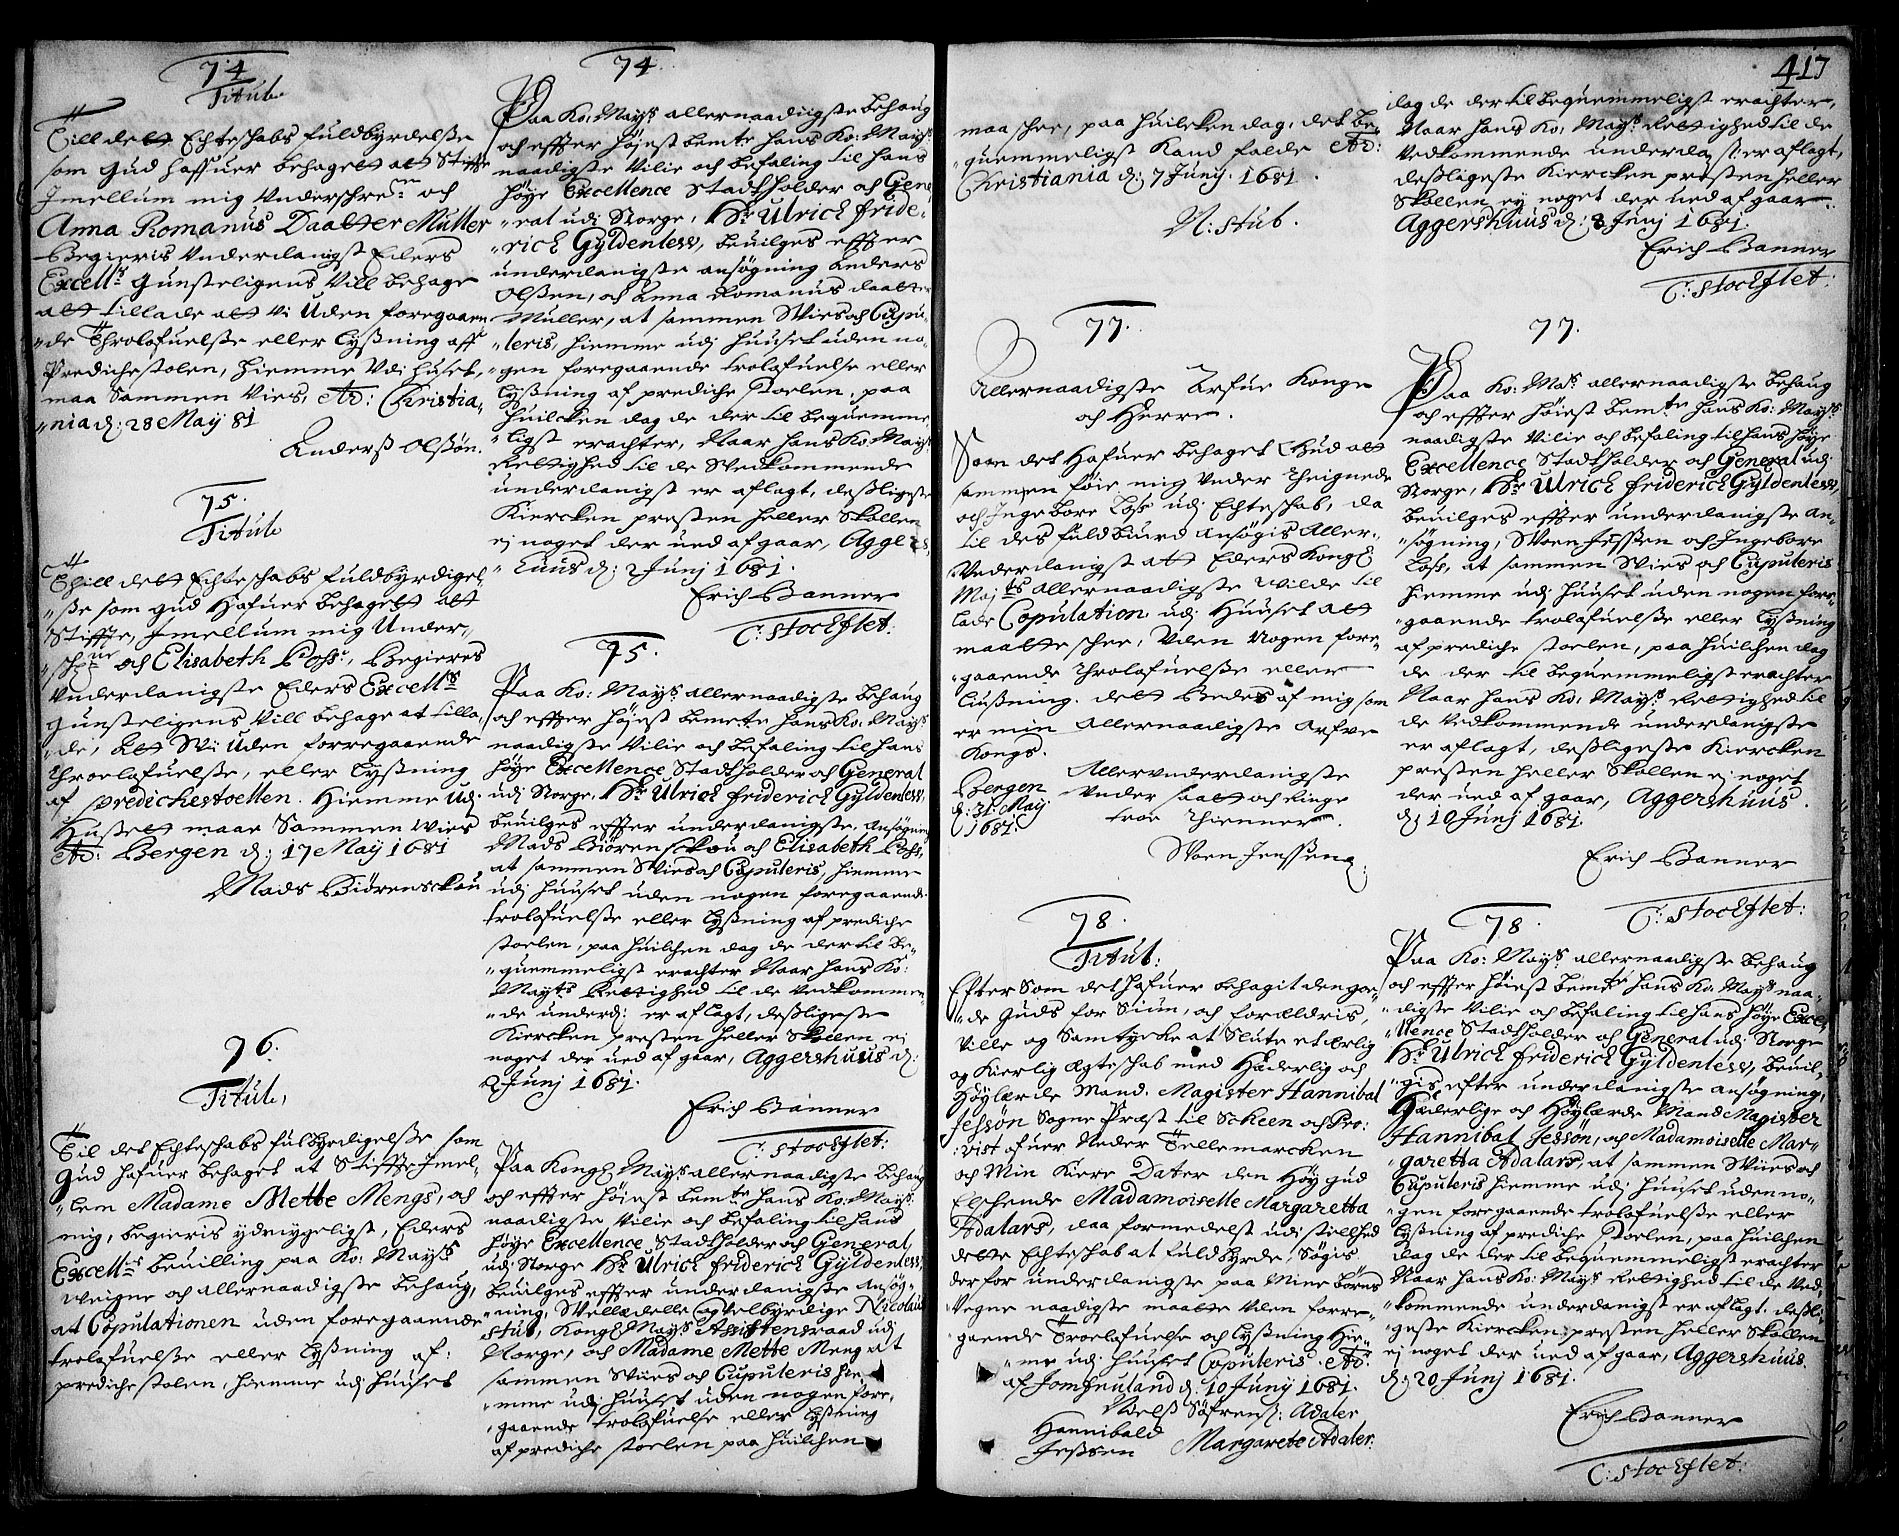 74
Titul.
Till dett Echteschabs fuldbyrdelsse
som Gud haffuer behagett att Stiffte
Imellum mig Underschreffne och
Anna Romanus Daatter Müller
Begieris Underdanigst Eders
Excells Gunsteligens Vill behage
att tillade att Vi Uden foregaaen
de Throlofuelsse eller Lysning aff
Predichestolen, hiemme Udi huset,
maa Sammen Vies, Ad: Christia,
nia d: 28 May 81
Anderss Olssøn.
75.
Titul
Thill dett Echteschabs fuldbyrdigel
sse som Gud Hafuer behagett att
Stiffte, Imellum mig Under
schrne och Elisabeth Poss, Begieres
Underdanigste Eders Excells
Gunsteligens Vill behage at tilla
de, Att Wi Uden forregaaende
Throelofuelsse, eller Lysning
af predichestoellen. Hiemme Udj
Hussett maae Sammen Wies
Ad: Bergen d: 17 May 1681
Mads Biørensckou
76.
Titul,
Til det Echteschabs fuldbyrdigelsse som
Gud hafuer behaget at Stiffte Imel
lem Madame Mette Mengs, och
mig, begieris ydmygeligst, Eders
Excells beuilling paa Ko: Mayts
weigne och allernaadigste behaug,
at Copulationen uden foregaaende
trolofuelsse eller lysning af
prediche stolen, hiemme udj huuset
74
Paa Ko: Mayts allernaadigste behaug
och effter højest bemte hans Ko: Mayts
naadigste Vilie och befaling til hans
høye Excellence Stadtholder och Gene
ral udj Norge, Hr Ulrich fride
rich Gyldenlew, beuilges effter
underdanigste ansøgning Anders
Olssen, och Anna Romanus daatter
Müller, at sammen Wies och Copu
leris, hiemme udj huuset uden no
gen foregaaende trolofuelse eller
Lysning af prediche Stoelen, paa
huilcken dag de der til bequemme
ligst erachter, Naar hans Ko: Mayts
Rettighed til de Wedkommende
underdanigst er aflagt, desligeste
Kiercken presten heller Skollen
ej noget der ued afgaar, Aggers
huus d: 2 Junj 1681.
Erich Banner
C: Stockflet:
75.
Paa Ko: Mayts allernaadigste behaug
och effter højest bemte hans Ko: Mayts
naadigste Vilie och befaling til hans
høye Excellence Stadtholder och General
udj Norge, Hr Ulrich friderich Gyldenlew,
beuilges effter underdanigste, ansøgning
Mads Biørensckou och Elisabeth Poss,
at sammen Wies och Copuleris, hiemme
udj huuset uden nogen foregaaende
trolofuelsse eller Lysning af prediche
stoelen, paa huilchen dag de der til be
quemmeligst erachter Naar hans Ko:
Mayts Rettighed til de Vedkommen
de underd: er aflagt, desligeste
Kiercken presten heller Skollen ej
noget der ued afgaar, Aggershuus d:
2 Junj 1681.
Erich Banner
C: Stockflet:
Paa Kongl Mayts allernaadigste behaug
och effter højest bemte hans Ko: Mayts
naadigste, Vilie och befaling til hans
høye Excellence Stadtholder och General
udj Norge Hr Ulrich friderich Gyldenlew,
beuilges effter underdanigste ansøg
ning, Welædelle og velbyrdige Nicolaus
stub, Kongl Mayts Assistensraad udj
Norge, och Madame Mette Meng at
sammen Wies och Copuleris hie
mme udj huuset uden nogen fore
gaaende trolofuelse eller Lysning
af prediche stoelen paa huilchen
417
maa schee, paa huilcken dag, det be
quemmeligst Kand falde Ad:
Christiania d: 7 Junj: 1681.
N: Stub.
77.
Allernaadigste Arfue Konge
och Herre.
Som det Hafuer behaget Gud att
sammen føie mig Under Theignede
och Ingebore Loss udj Echteschab, da
til des fuldbiurd ansøgis Aller
Underdanigst att Eders Kongl
Majts allernaadigste wilde til
lade Copulation udj Huuset att
maatte schee, Uden nogen fore
gaaende Throlofuelsse eller
Liusning. dett Bedes af mig som
er min Allernaadigste Arfve
Kongs.
Bergen
d: 31 May
1681.
Allerunderdanigste
Under saatt och Ringe
troe Thienner.
Swen Jenssen
78.
Titul:
Efter Som det hafuer behagit den goe
de Guds for Siun, och forældris,
Ville og Samtycke at Slute et ærlig
og Kierlig Egteschab med Hæderlig och
Høylærde Mand. Magister Hannibal
Jessøn Sogne Præst til Scheen och Pro
vist ofuer Neder Tellemarcken
och Min Kiere Dater den Høy Gud
Elschende Madamoiselle Margaretta
Adalars, daa formedelst udj stillhed
dette Echteschab at fuldbyrde, Søgis
derfor underdanigste paa Mine børns
Vegne naadigste maatte Uden forre
gaaende Troelofuelse och Lysning Hie
me udj huuset Copuleris. Ad:
af Jomfruland d: 10 Junj 1681.
Niels Søfrens: Adaler
Hannibald
Jessen
Margarete Adaler.
dag de der til bequemmeligst erachter,
Naar hans Ko: Mayts Rettighed til de
Vedkommende underda st: er aflagt,
desligeste Kiercken presten heller
Skollen ej noget der ued afgaar.
Aggershuus d: 8 Junj 1681.
Erich Banner
C: Stockflet:
77.
Paa Ko: Mayts allernaadigste behaug
och effter høiest bemte hans Ko: Mayts
naadigste Vilie och befaling til hans høye
Excellence Stadtholder och General udj
Norge, Hr Ulrich friderich Gyldenlew,
beuilges effter underdanigste an
søgning, Swen Jessen och Ingebore
Loss, at sammen Wies och Copuleris
hiemme udj huuset uden nogen fore
gaaende trolofuelsse eller Lysning
af prediche stoelen, paa huilchen dag
de der til bequemmeligst erachter
Naar hans Ko: Mayts Rettighed til
de Vedkommende underdanigste
er aflagt, desligeste Kiercken
presten heller Skollen ej noget
der ued afgaar, Aggershuus.
d: 10 Junj 1681.
Erich Banner
C: Stockflet:
78.
Paa Ko: Mayts allernaadigste behaug
och effter høiest bemte hans Ko: Mayts naa
digste Vilie och befaling til hans høye Excel
lence Stadtholder och General udj Norge
Hr Ulrich friderich Gyldenlew, beuil
gis efter underdanigste ansøgning,
Hæderlige och Høylærde Mand Magister
Hannibal Jessøn, och Madamoiselle Mar
garetta Adalars, at sammen Wies och
Copuleris hiemme udj huuset uden no
gen foregaaende trolofuelsse eller
Lysning af prediche Stoelen, paa huilchen
dag de der til bequemmeligst erachter
Naar hans Ko: Mayts Rettighed til de Ved
kommende underdanigst er aflagt. desli
geste Kiercken presten heller Skollen
ej noget der ued afgaar, Aggershuus.
d: 20 Junj 1681.
Erich Banner
C: Stockflet: